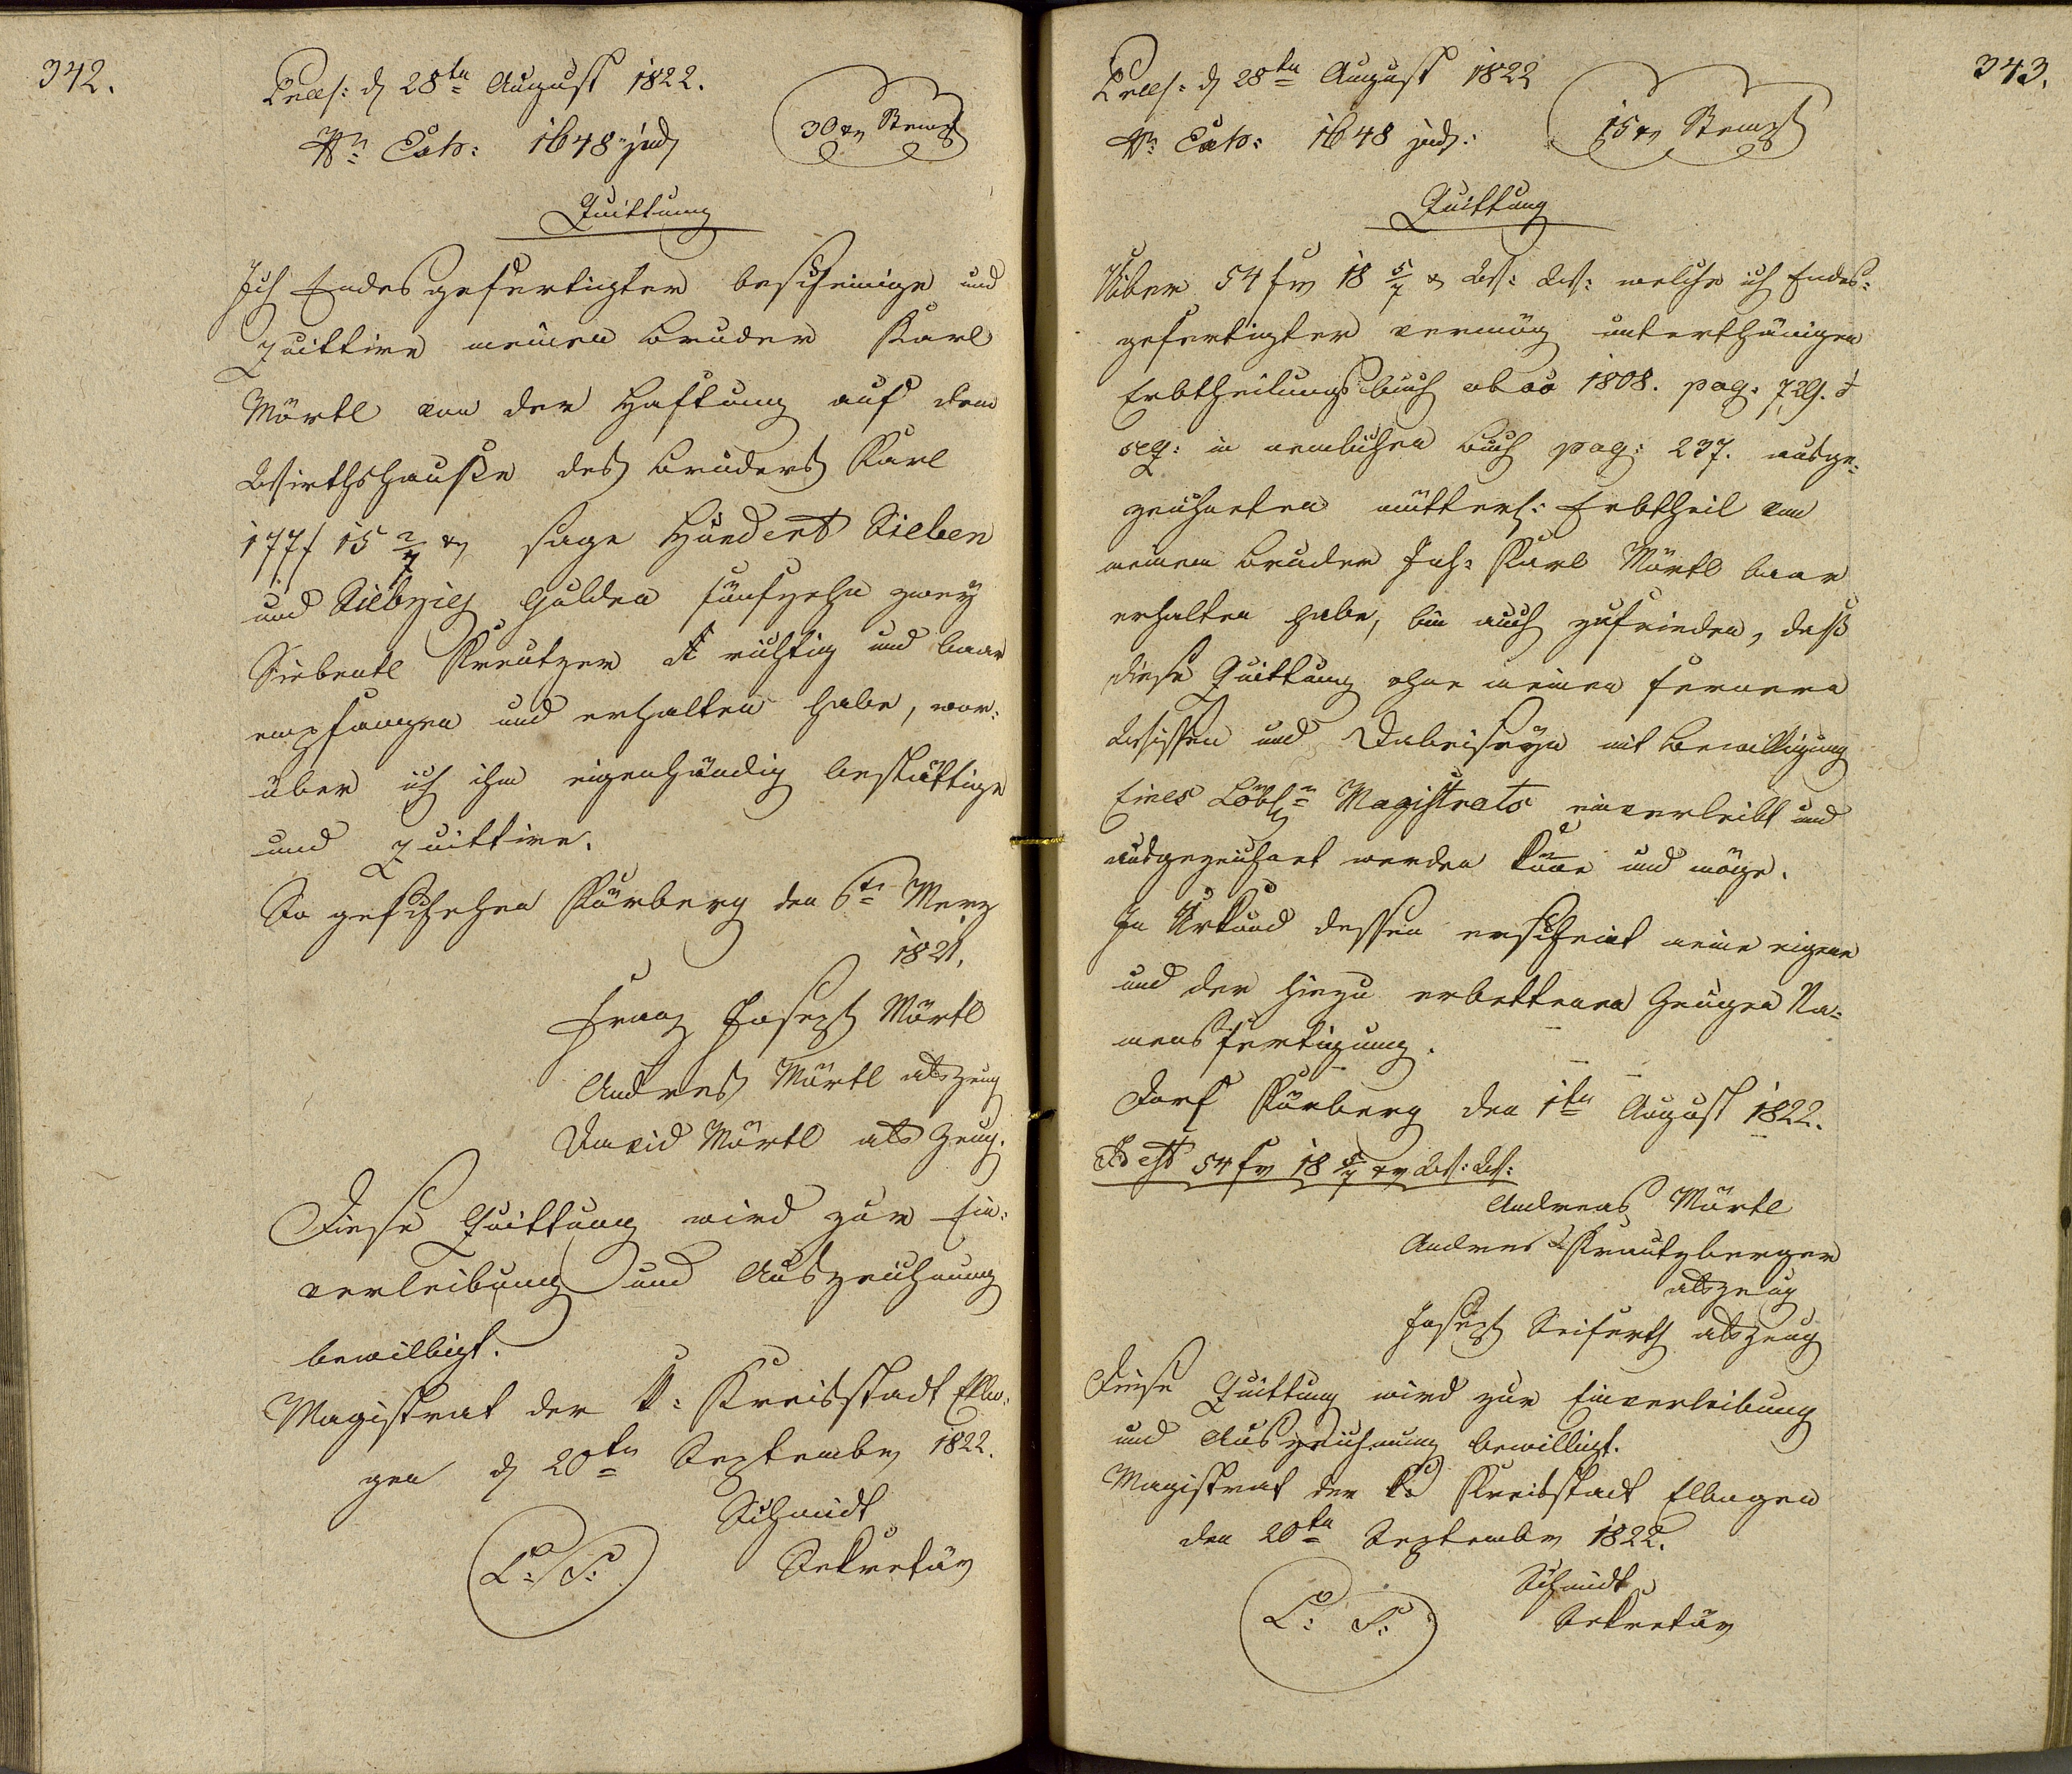 342.
Præs: d 28ten August 1822.
Nro Exh: 1648 jud
30 xr Stempl
Quittung
Ich Endesgefertigter bescheinige und
quittire meinen Bruder Karl
Mörtl von der Haftung auf dem
Wirthshauße des Bruders Karl
177 f 15 2/7 xr sage Hundert Sieben
und Siebzig Gulden fünfzehn zwey
Siebentl Kreutzer richtig und baar
empfangen und erhalten habe, wor:
über ich ihm eigenhändig bestättige
und quittire.
So geschehen Pürberg den 6ten Merz
1821.
Franz Joseph Mörtl
Andreas Mörtl als Zeug
David Mörtl als Zeug.
Diese Quittung wird zur Ein:
verleibung und Auszeichnung
bewilligt.
Magistrat der k: Kreisstadt Ellbo:
gen d 20ten September 1822.
Schmidt
L: S:
Sekretär
343.
Præs: d 28ten August 1822
Nro Exh: 1648 jud:
15 xr Stempl
Quittung
Über 54 fr 18 5/7 xr W: W: welche ich Endes:
gefertigter vermög unterthänigen
Erbtheilungsbuch ab ao 1808. pag: 729. et
seq: in nemlichen Buch pag: 237. ausge:
zeichneten mütterl: Erbtheil von
meinem Bruder Joh: Karl Mörtl baar
erhalten habe, bin auch zufrieden, daß
diese Quittung ohne meinen fernern
Wissen und Dabeiseyn mit Bewilligung
Eines Löbln Magistrats einverleibt und
ausgezeichnet werden könne und möge.
In Urkund dessen erscheint meine eigene
und der hiezu erbettenen Zeugen Na:
mensfertigung.
Dorf Pürberg den 1ten August 1822.
Id est 54 fr 18 5/7 xr W: W:
Andreas Mörtl
Andres Kreutzberger
als Zeug
Joseph Seiferth als Zeug
Diese Quittung wird zur Einverleibung
und Auszeichnung bewilligt.
Magistrat der k: Kreisstadt Elbogen
den 20ten September 1822.
Schmidt
L: S:
Sekretär